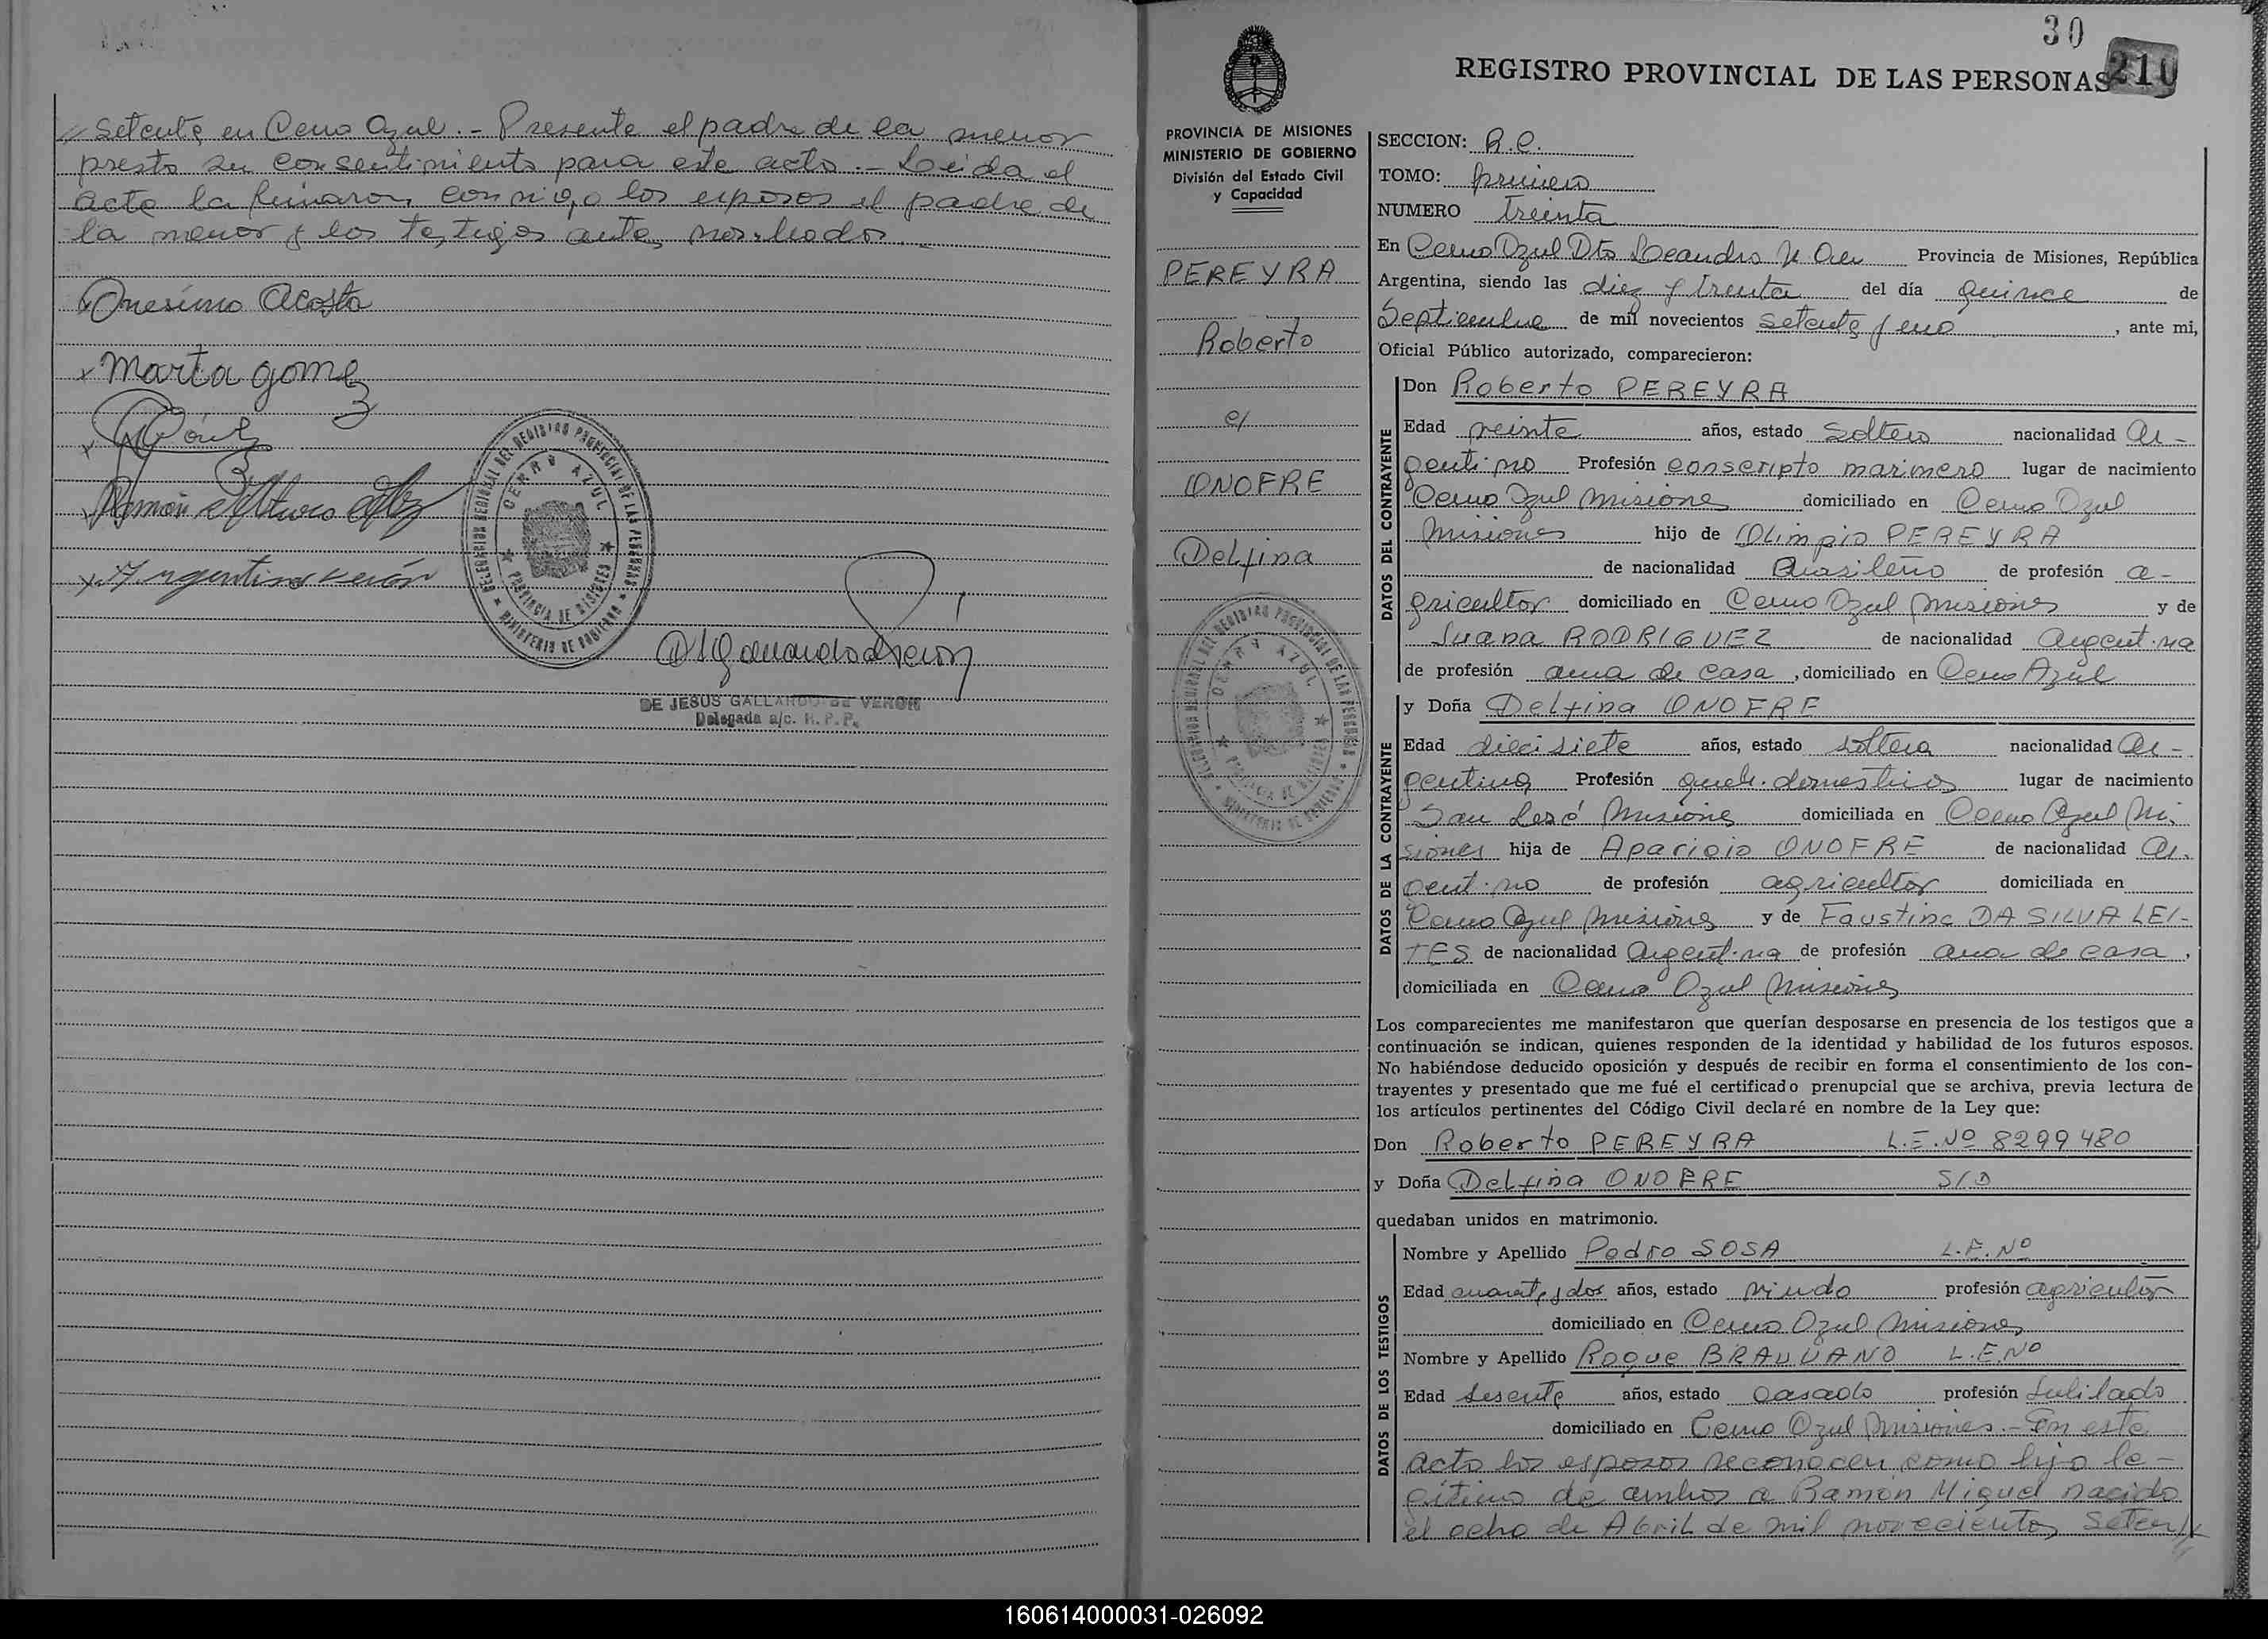 // Setenta en Cerro Azul. - Presente el padre de la menor
presto su consentimiento para este acto. - Leida el
acta la firmaron conmigo los esposos el padre de
la menor y los testigos antes nombrados. -
Onesimo Acosta
x Marta gomez
Ramón Arturo
x Argentino Verón
DELEGACION REGIONAL DEL REGISTRO PROVINCIAL DE LAS PERSONAS
CERRO AZUL
PROVINCIA DE MISIONES
MINISTERIO DE GOBIERNO
DE JESUS GALLARDO DE VERON
Delegada a/c. R. P. P.
30
210
REGISTRO PROVINCIAL DE LAS PERSONAS
PROVINCIA DE MISIONES
MINISTERIO DE GOBIERNO
División del Estado Civil
y Capacidad
PEREYRA
Roberto
c/
ONOFRE
Delfina
DELEGACION REGIONAL DEL REGISTRO PROVINCIAL DE LAS PERSONAS
CERRO AZUL
PROVINCIA DE MISIONES
MINISTERIO DE GOBIERNO
SECCION: R.C.
TOMO: primero
NUMERO treinta
En Cerro Azul Dto Leandro N Alem Provincia de Misiones, República
Argentina, siendo las diez y treinta del día quince de
Septiembre de mil novecientos setenta y uno, ante mi,
Oficial Público autorizado, comparecieron:
DATOS DEL CONTRAYENTE
Don Roberto PEREYRA
Edad veinte años, estado Soltero nacionalidad Ar-
gentino Profesión conscripto marinero lugar de nacimiento
Cerro Azul Misiones domiciliado en Cerro Azul
Misiones hijo de Olimpio PEREYRA
de nacionalidad Brasileño de profesión a-
gricultor domiciliado en Cerro Azul Misiones y de
Juana RODRIGUEZ de nacionalidad Argentina
de profesión ama de casa, domiciliado en Cerro Azul
DATOS DE LA CONTRAYENTE
y Doña Delfina ONOFRE
Edad diecisiete años, estado soltera nacionalidad Ar-
gentina Profesión queh. domesticos lugar de nacimiento
San José Misiones domiciliada en Cerro Azul Mi.
siones hija de Aparicio ONOFRE de nacionalidad Ar.
gentino de profesión agricultor domiciliada en
Cerro Azul Misiones y de Faustina DA SILVA LEI-
TES de nacionalidad Argentina de profesión ama de casa,
domiciliada en Cerro Azul Misiones
Los comparecientes me manifestaron que querían desposarse en presencia de los testigos que a
continuación se indican, quienes responden de la identidad y habilidad de los futuros esposos.
No habiéndose deducido oposición y después de recibir en forma el consentimiento de los con-
trayentes y presentado que me fué el certificado prenupcial que se archiva, previa lectura de
los artículos pertinentes del Código Civil declaré en nombre de la Ley que:
Don Roberto PEREYRA L.E.Nº 8299480
y Doña Delfina ONOFRE S/D
quedaban unidos en matrimonio.
DATOS DE LOS TESTIGOS
Nombre y Apellido Pedro SOSA L.E.Nº
Edad cuarenta y dos años, estado viudo profesión agricultor
domiciliado en Cerro Azul Misiones
Nombre y Apellido Roque L.E.Nº
Edad sesenta años, estado casado profesión Jubilado
domiciliado en Cerro Azul Misiones. - En este
acto los esposos reconocen como hijo le-
gitimo de ambos a Ramon Miguel nacido
el ocho de Abril de mil novecientos Setenta
160614000031-026092